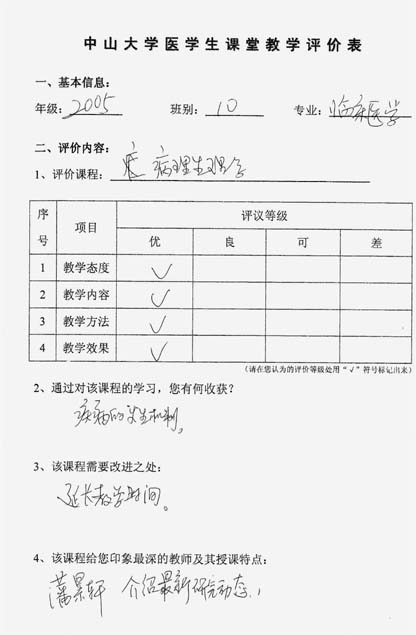 中山大学医学生课堂教学评价表
一、基本信息：
年级: 2005 班别: 10 专业: 临床医学
二、评价内容：
1、评价课程: 病理生理学
序号 项目 评议等级
优 良 可 差
1 教学态度 √
2 教学内容 √
3 教学方法 √
4 教学效果 √
（请在您认为的评价等级处用“√”符号标记出来）
2、通过对该课程的学习，您有何收获？
疾病的发生机制。
3、该课程需要改进之处：
延长教学时间。
4、该课程给您印象最深的教师及其授课特点：
潘景轩 介绍最新研究动态。